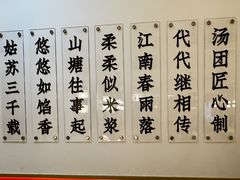 汤团匠心制
代代继相传
江南春雨落
柔柔似米浆
山塘往事起
悠悠如馅香
姑苏三千载